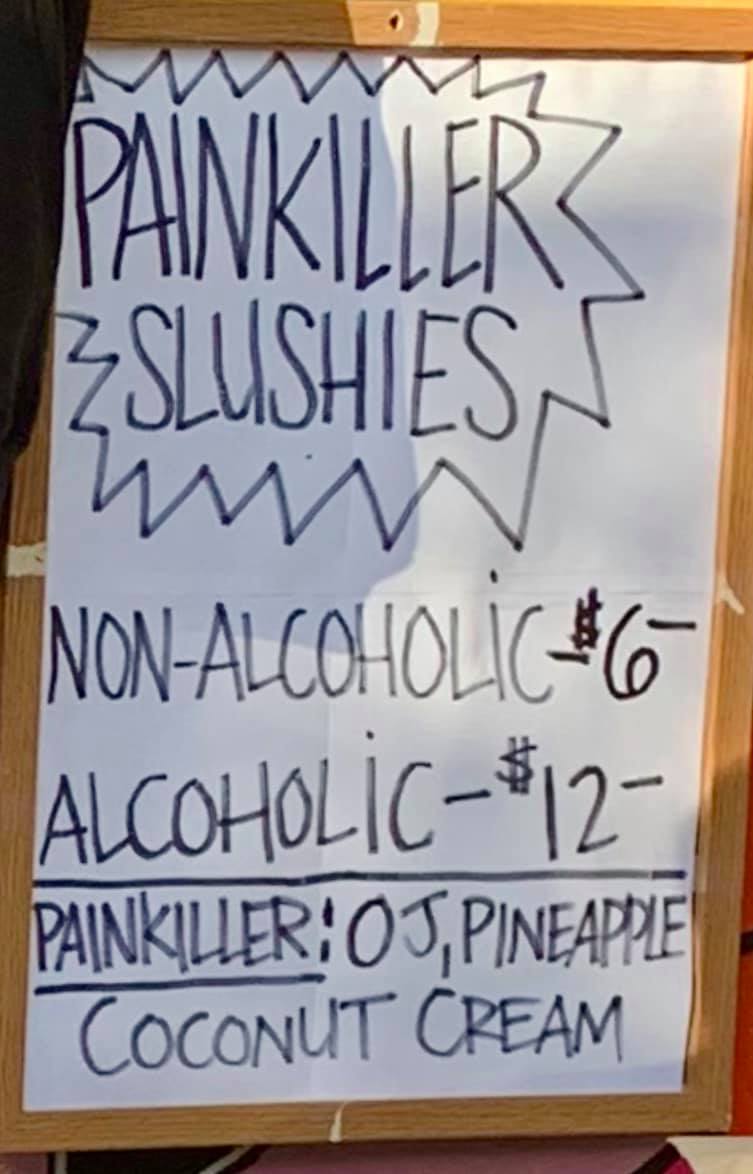 PAINKILLER
SLUSHIES
NON-ALCOHOLIC-$6-
ALCOHOLIC-$12-
PAINKILLER: OJ, PINEAPPLE
COCONUT CREAM